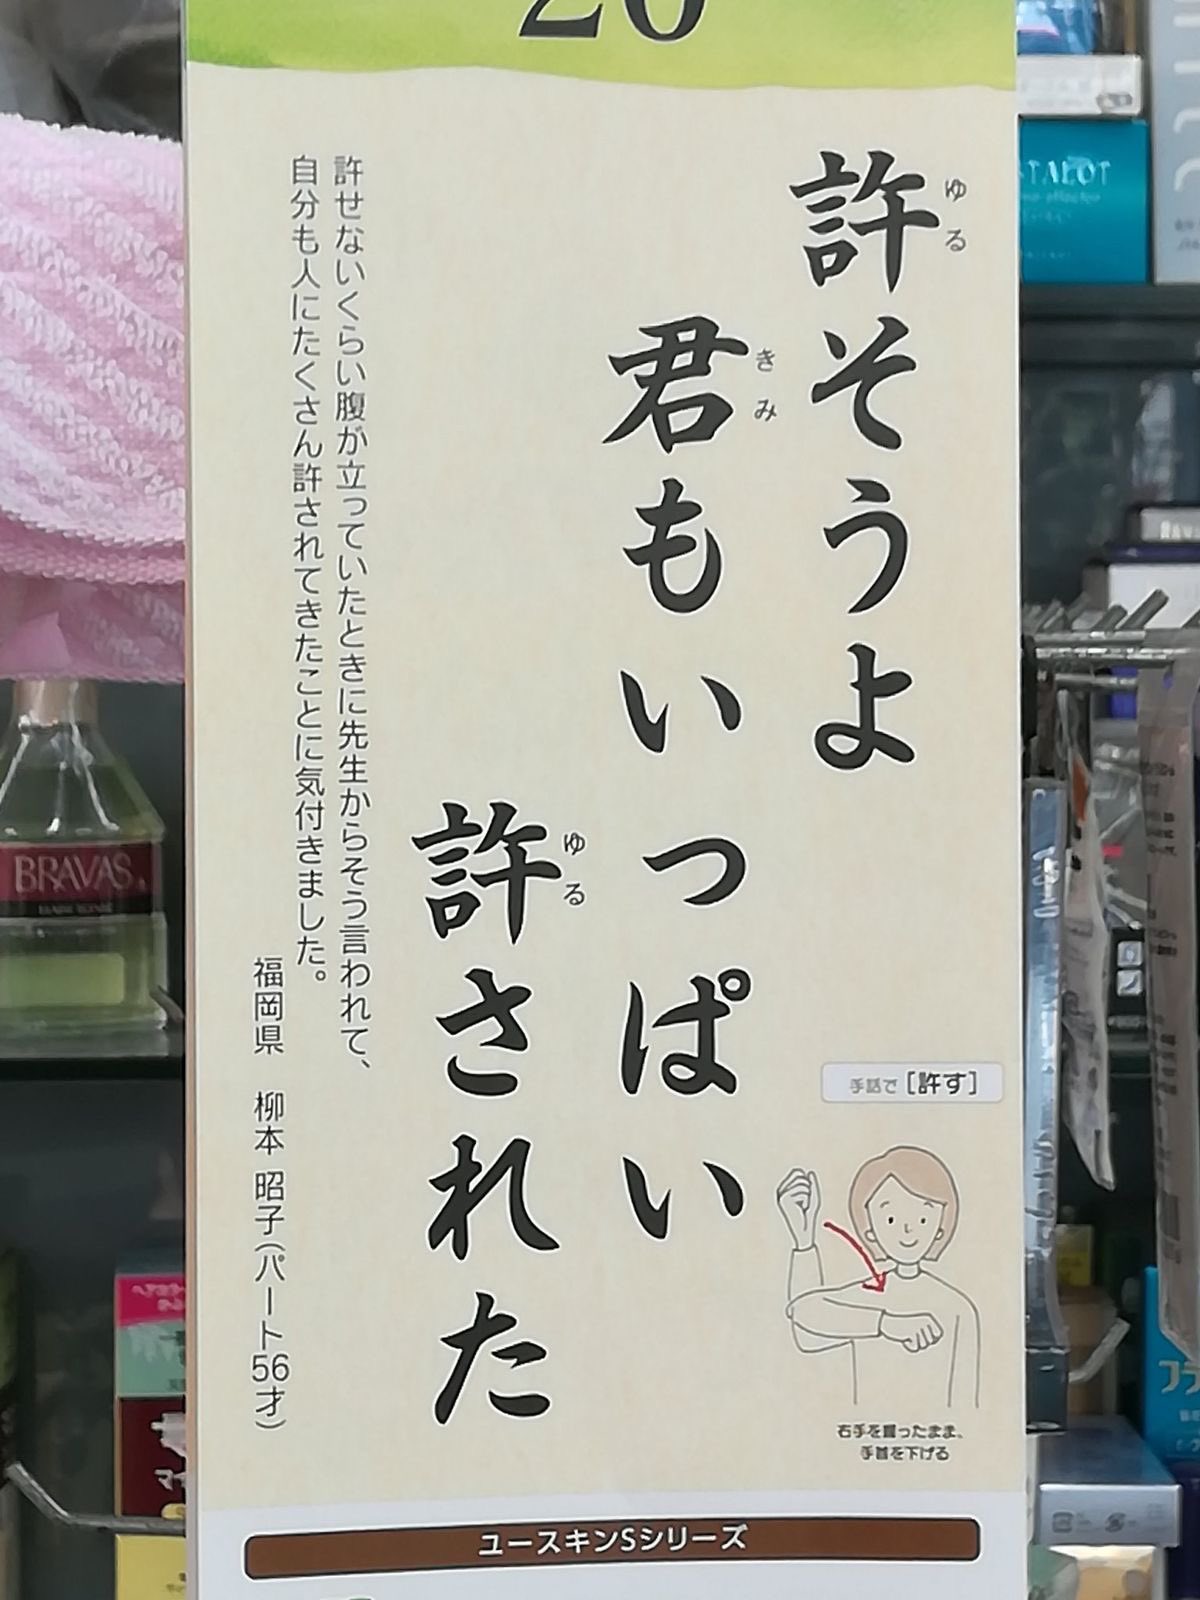 20
許そうよ
ゆる
君もいっぱい
きみ
許された
ゆる
許せないくらい腹が立っていたときに先生からそう言われて、
自分も人にたくさん許されてきたことに気付きました。
福岡県 柳本 昭子(パート56才)
手話で[許す]
右手を握ったまま、
手首を下げる
ユースキンSシリーズ
BRAVAS
HAIR TONIC